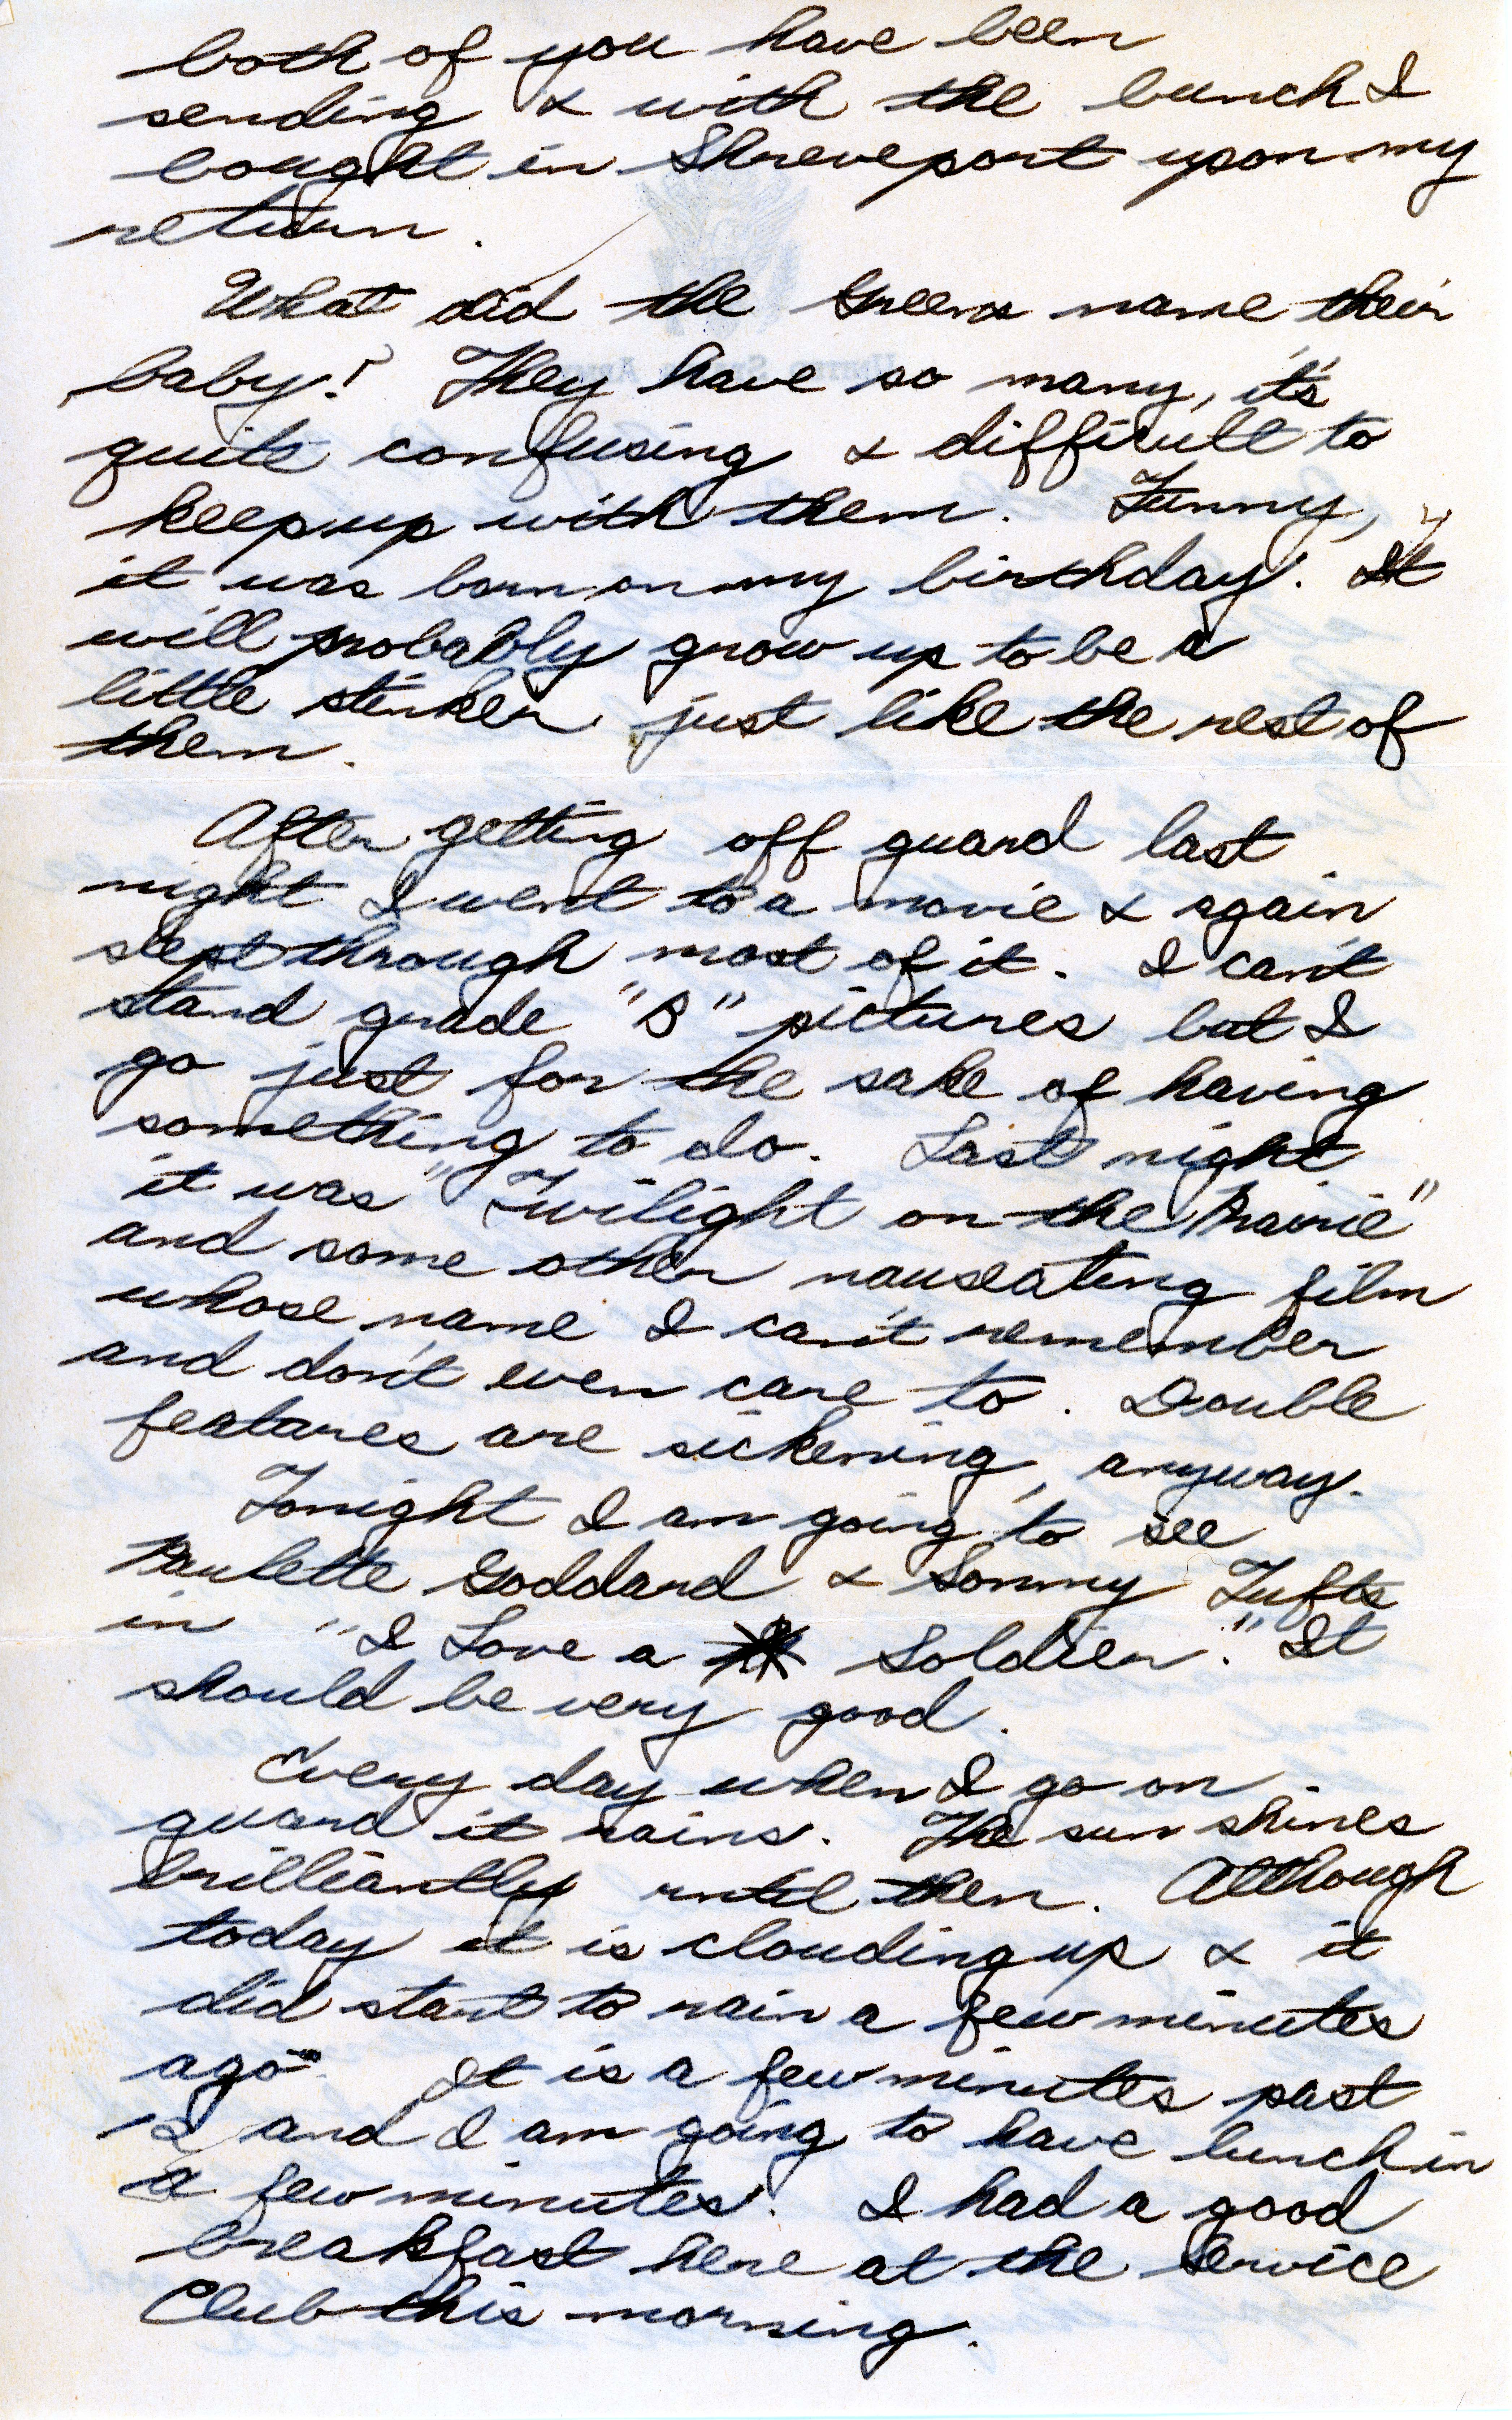 both of you have been
sending & with the bunch I
bought in Shreveport upon my
return.
What did the Greens name their
baby? They have so many, it's
quite confusing & difficult to
keep up with them. Funny,
it was born on my birthday. It
will probably grow up to be a
little stinker just like the rest of
them.
After getting off guard last
night I went to a movie & again
slept through most of it. I can't
stand grade "B" pictures but I
go just for the sake of having
something to do. Last night
it was "Twilight on the Prairie"
and some other nauseating film
whose name I can't remember
and don't even care to. Double
features are sickening, anyway.
Tonight I am going to see
Paulette Goddard & Sonny Tufts
in "I Love a Soldier." It
should be very good.
Every day when I go on
guard it rains. The sun shines
brilliantly until then. Although
today it is clouding up & it
did start to rain a few minutes
ago. It is a few minutes past
12 and I am going to have lunch in
a few minutes. I had a good
breakfast here at the Service
Club this morning.